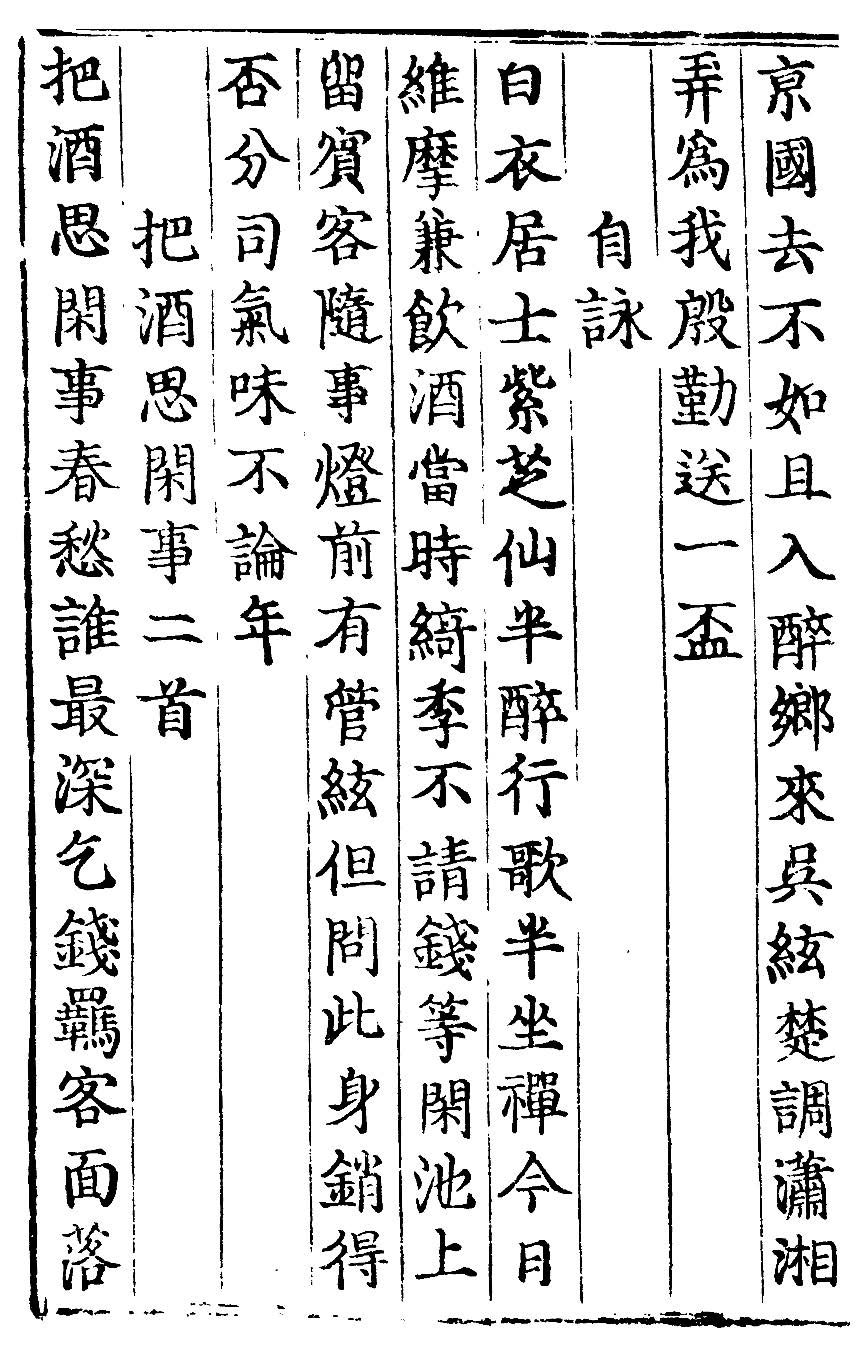 京國去不如且入醉鄉來吳絃楚調瀟湘
弄爲我殷勤送一盃
自詠
白衣居士紫芝仙半醉行歌半坐禪今日
維摩兼飲酒當時綺季不請錢等閑池上
留賓客隨事燈前有管絃但問此身銷得
否分司氣味不論年
把酒思閑事二首
把酒思閑事春愁誰最深乞錢羈客面落